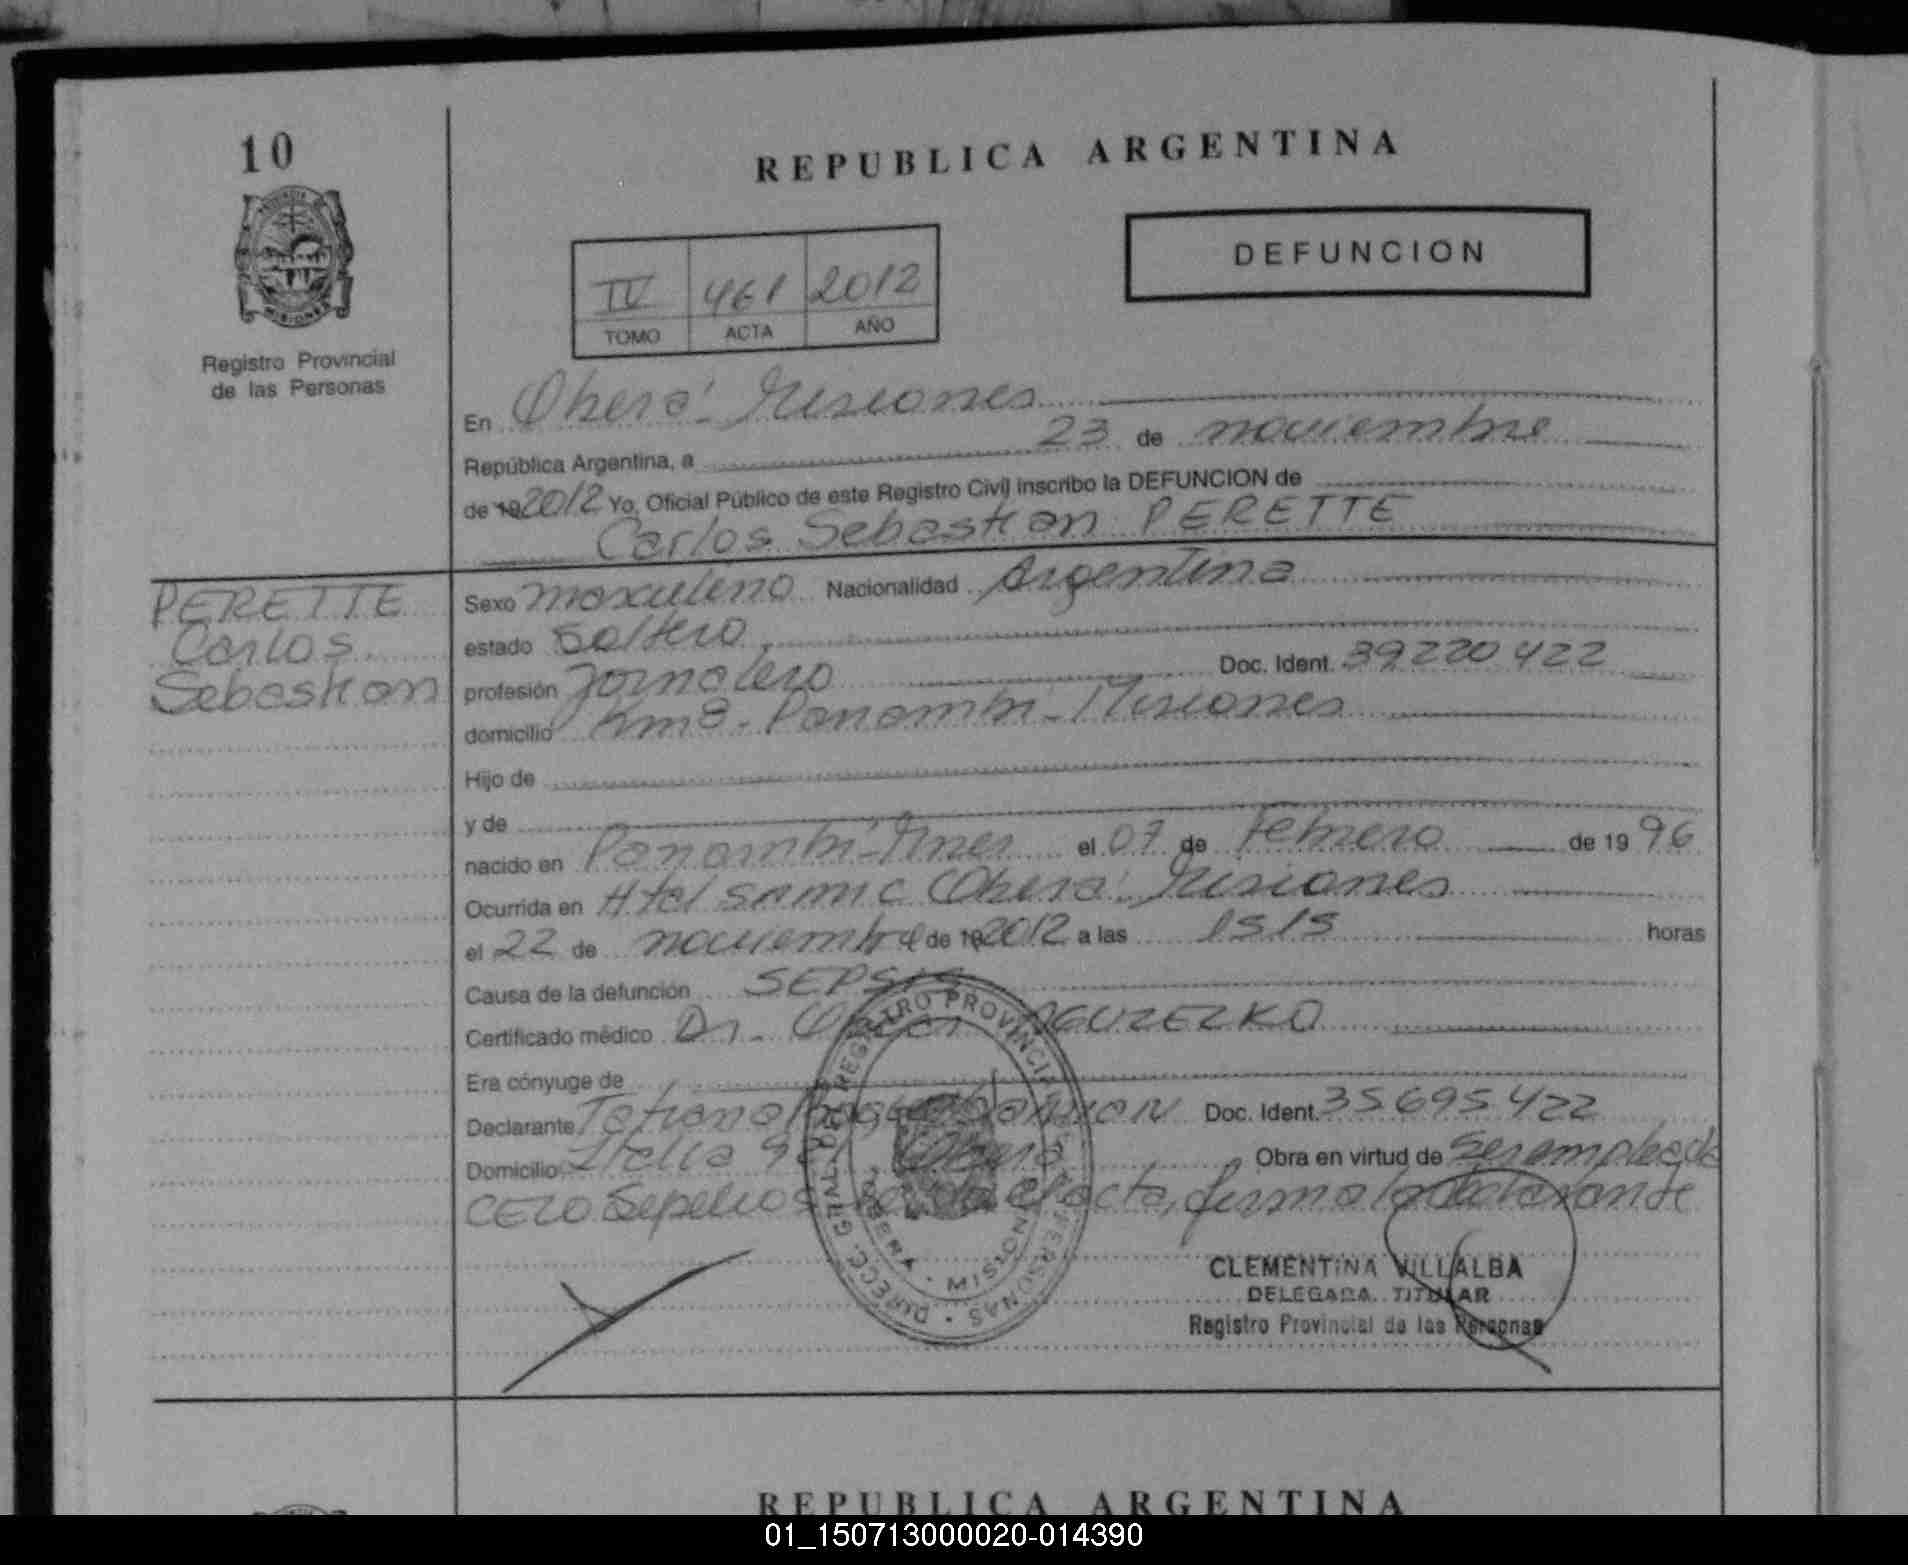 10
REPUBLICA ARGENTINA
DEFUNCION
IV 461 2012
TOMO ACTA AÑO
Registro Provincial
de las Personas
En Oberá - Misiones
República Argentina, a 23 de noviembre
de 19 2012 Yo, Oficial Público de este Registro Civil inscribo la DEFUNCION de
Carlos Sebastian PERETTE
PERETTE
Carlos
Sebastian
Sexo masculino Nacionalidad Argentina
estado Soltero
profesión Jornalero Doc. Ident. 39220422
domicilio Km 8 - Panambi - Misiones
Hijo de
y de
nacido en Panambi - Mnes el 07 de Febrero de 19 96
Ocurrida en Htal SAMIC Oberá - Misiones
el 22 de noviembre de 19 2012 a las 1515 horas
Causa de la defunción SEPSIS
Certificado médico Dr.
Era cónyuge de
Declarante Tatiana Doc. Ident. 35695422
Domicilio Oberá Obra en virtud de ser empleada
CELO Sepelios acta, firma la declarante
REGISTRO PROVINCIAL DE LAS PERSONAS
OBERA - MISIONES
CLEMENTINA VILLALBA
DELEGADA TITULAR
Registro Provincial de las Personas
REPUBLICA ARGENTINA
01_150713000020-014390